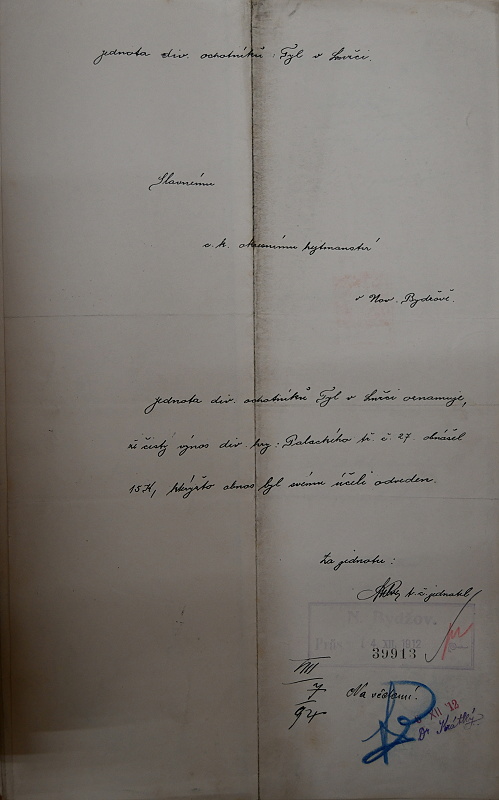 jednota div. ochotníků: Tyl v Lužci.
Slavnému
c. k. okresnímu hejtmanství
v Nov. Bydžově.
jednota div. ochotníků Tyl v Lužci oznamuje,
že čistý výnos div. hry: Palackého tř. č. 27. obnášel
15 K, kterýžto obnos byl svému účeli odveden.
Za jednotu:
t. č. jednatel
N. Bydžov.
4 XII 1912
39913
VIII
7
94
Na vědomí!
XII 12
Dr. Krátký